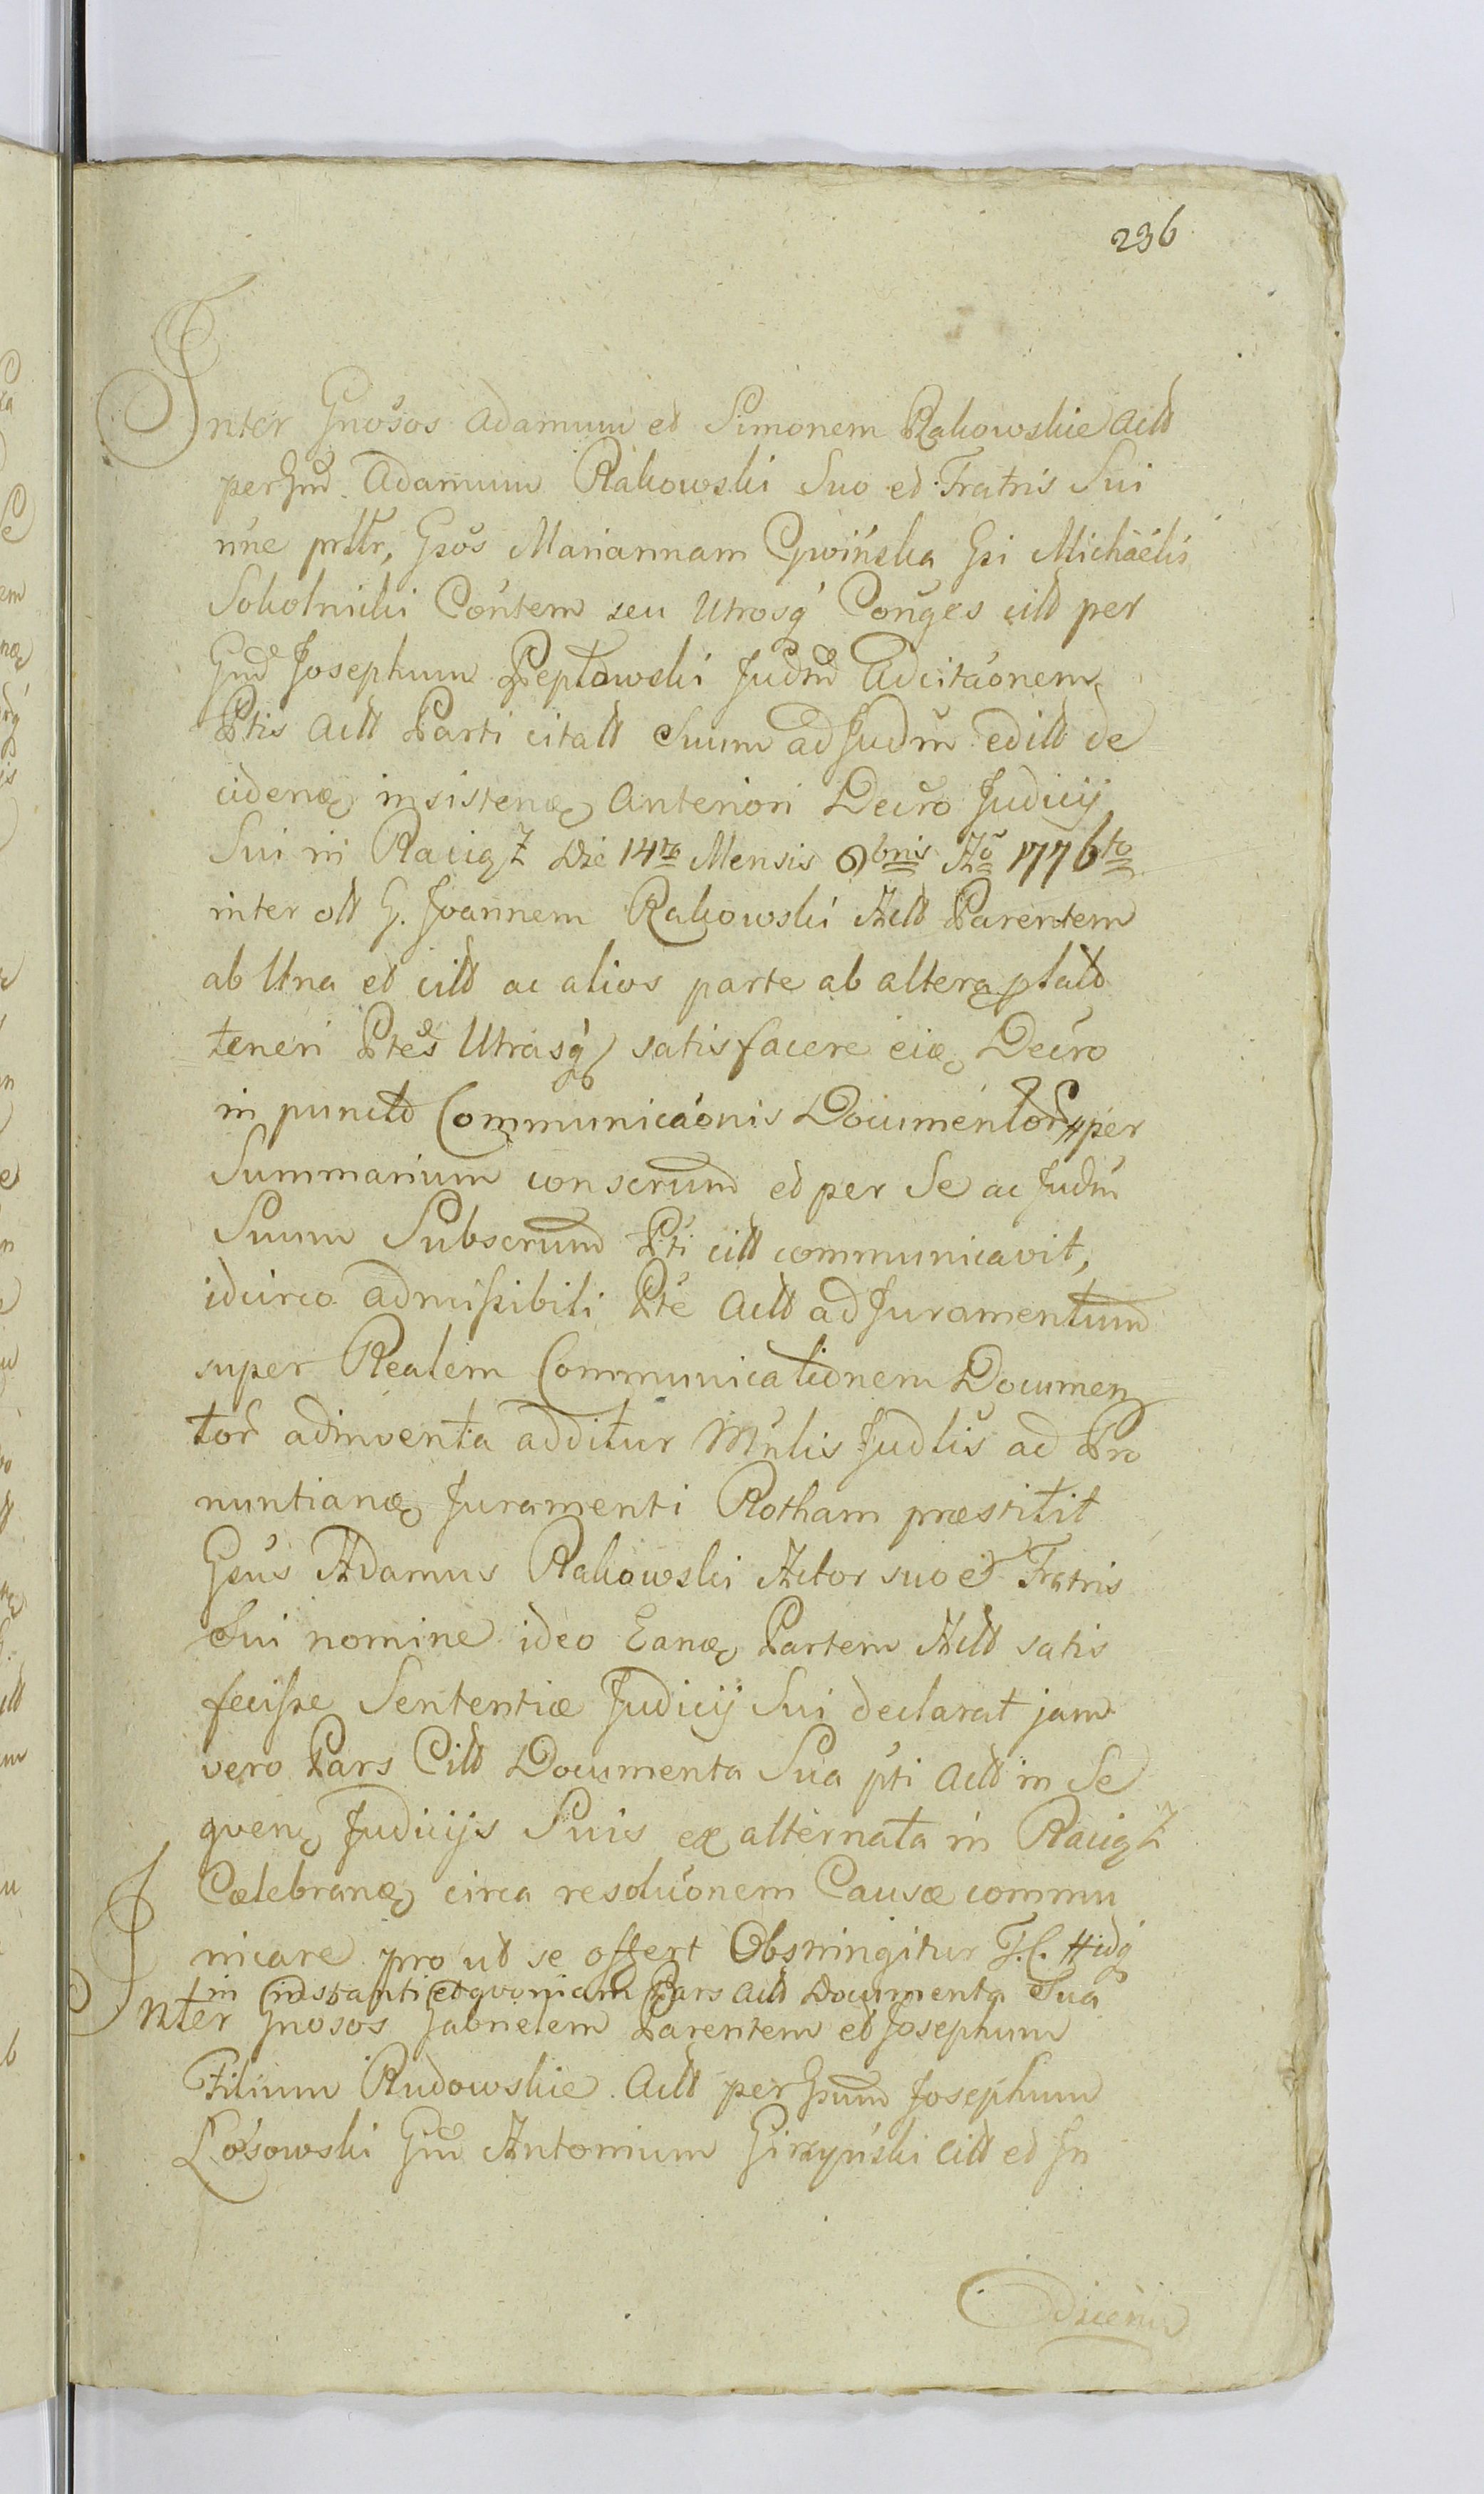 236
Inter Gnosos Adamum et Simonem Rakowskie Actt
per Gnd. Adamum Rakowski Suo et Fratris Sui
nne prttr, Gsos Mariannam Cywińska Gsi Michaelis
Sokolnicki Contem seu Utrosq Conges citt per
Gnd Josephum Peptowski Judm Adcitaonem
Ptis Actt Parti citatt Suum ad Judm editt de
cidenæ insistenæ Anteriori Decro Judicij
Sui in Raciąż Die 14ta Mensis 9bris Ao 1776to
inter ott G. Joannem Rakowski Actt Parentem
ab Una et citt ac alios parte ab altera platt
teneri Ptes Utrasq satisfacere eiæ Decro
in puncto Communicaonis Documentor # per
Summarium conscrum et per Se ac Judm
Suum Subscrum Pti citt communicavit,
idcirco admissibili Pte Actt ad Juramentum
super Realem Communicationem Documen
tor adinventa additur Mnlis Judlis ad Pro
nuntianæ Juramenti Rotham præstitit
Gsus Adamus Rakowski Actor suo et Fratris
Sui nomine ideo Eanæ Partem Actt satis
fecisse Sententiæ Judicij Sui declarat jam
vero Pars Citt Documenta Sua pti Actt in Se
quen Judicijs Suis ex alternata in Raciąż
Cælebranæ circa resoluonem Causæ commu
nicare pro ut se offert Obstringitur T.C. # idq
in instanti et quoniam Pars Actt Documenta Sua
Inter Gnosos Gabrielem Parentem et Josephum
Filium Rudowskie Actt per Gsum Josephum
Łosowski Gnd Antonium Girzyński Citt et In